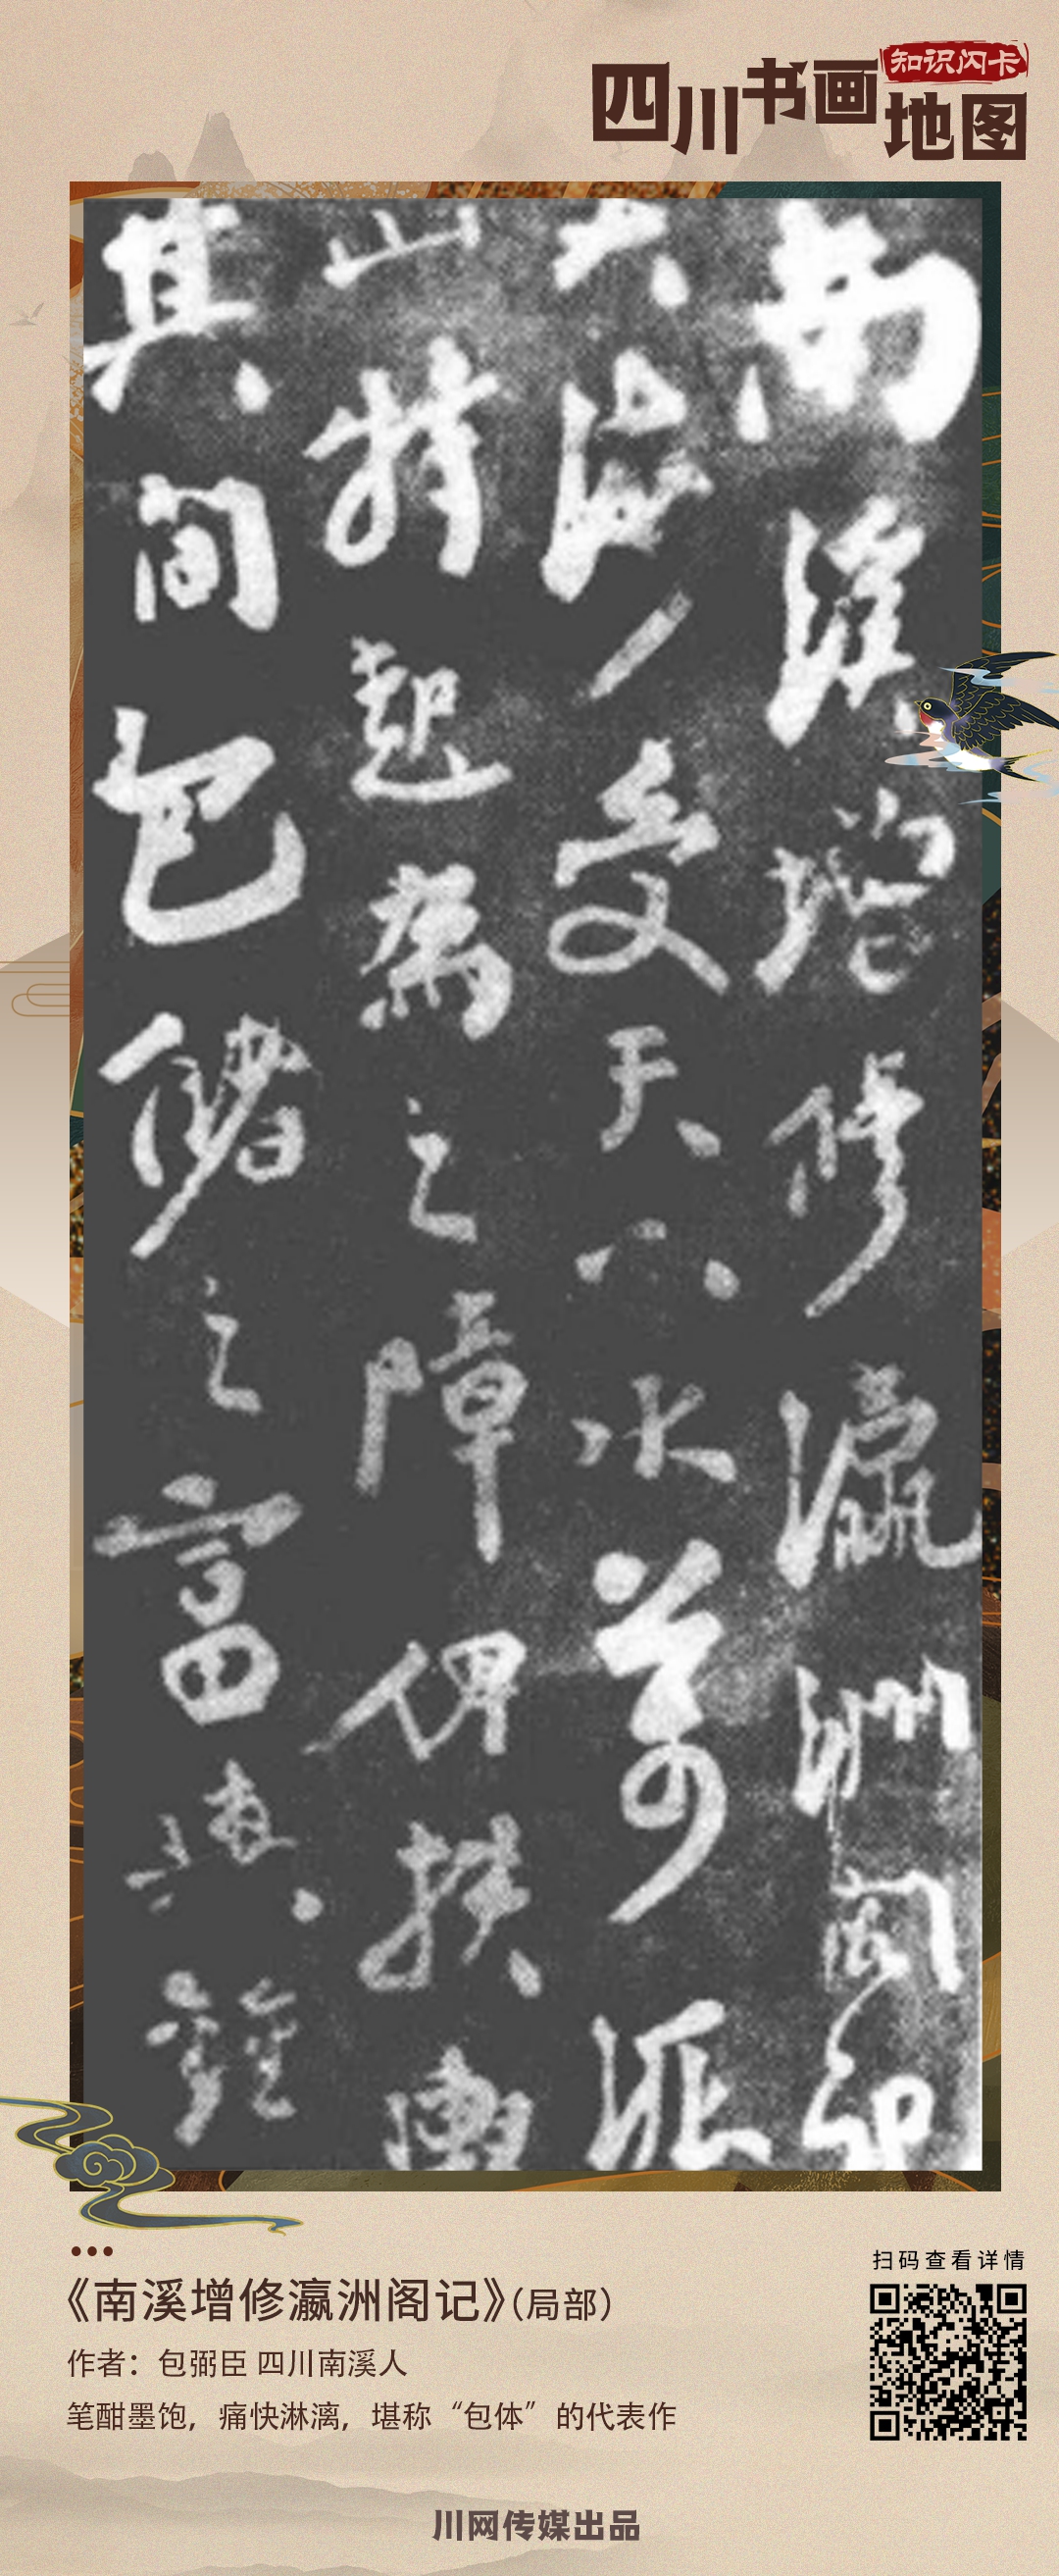 知识闪卡
四川书画地图
南溪增修瀛洲閣記
海受天下水萬派
山特起爲之障俾扶輿
其間包儲之富
《南溪增修瀛洲阁记》(局部)
作者：包弼臣 四川南溪人
笔酣墨饱，痛快淋漓，堪称“包体”的代表作
扫码查看详情
川网传媒出品